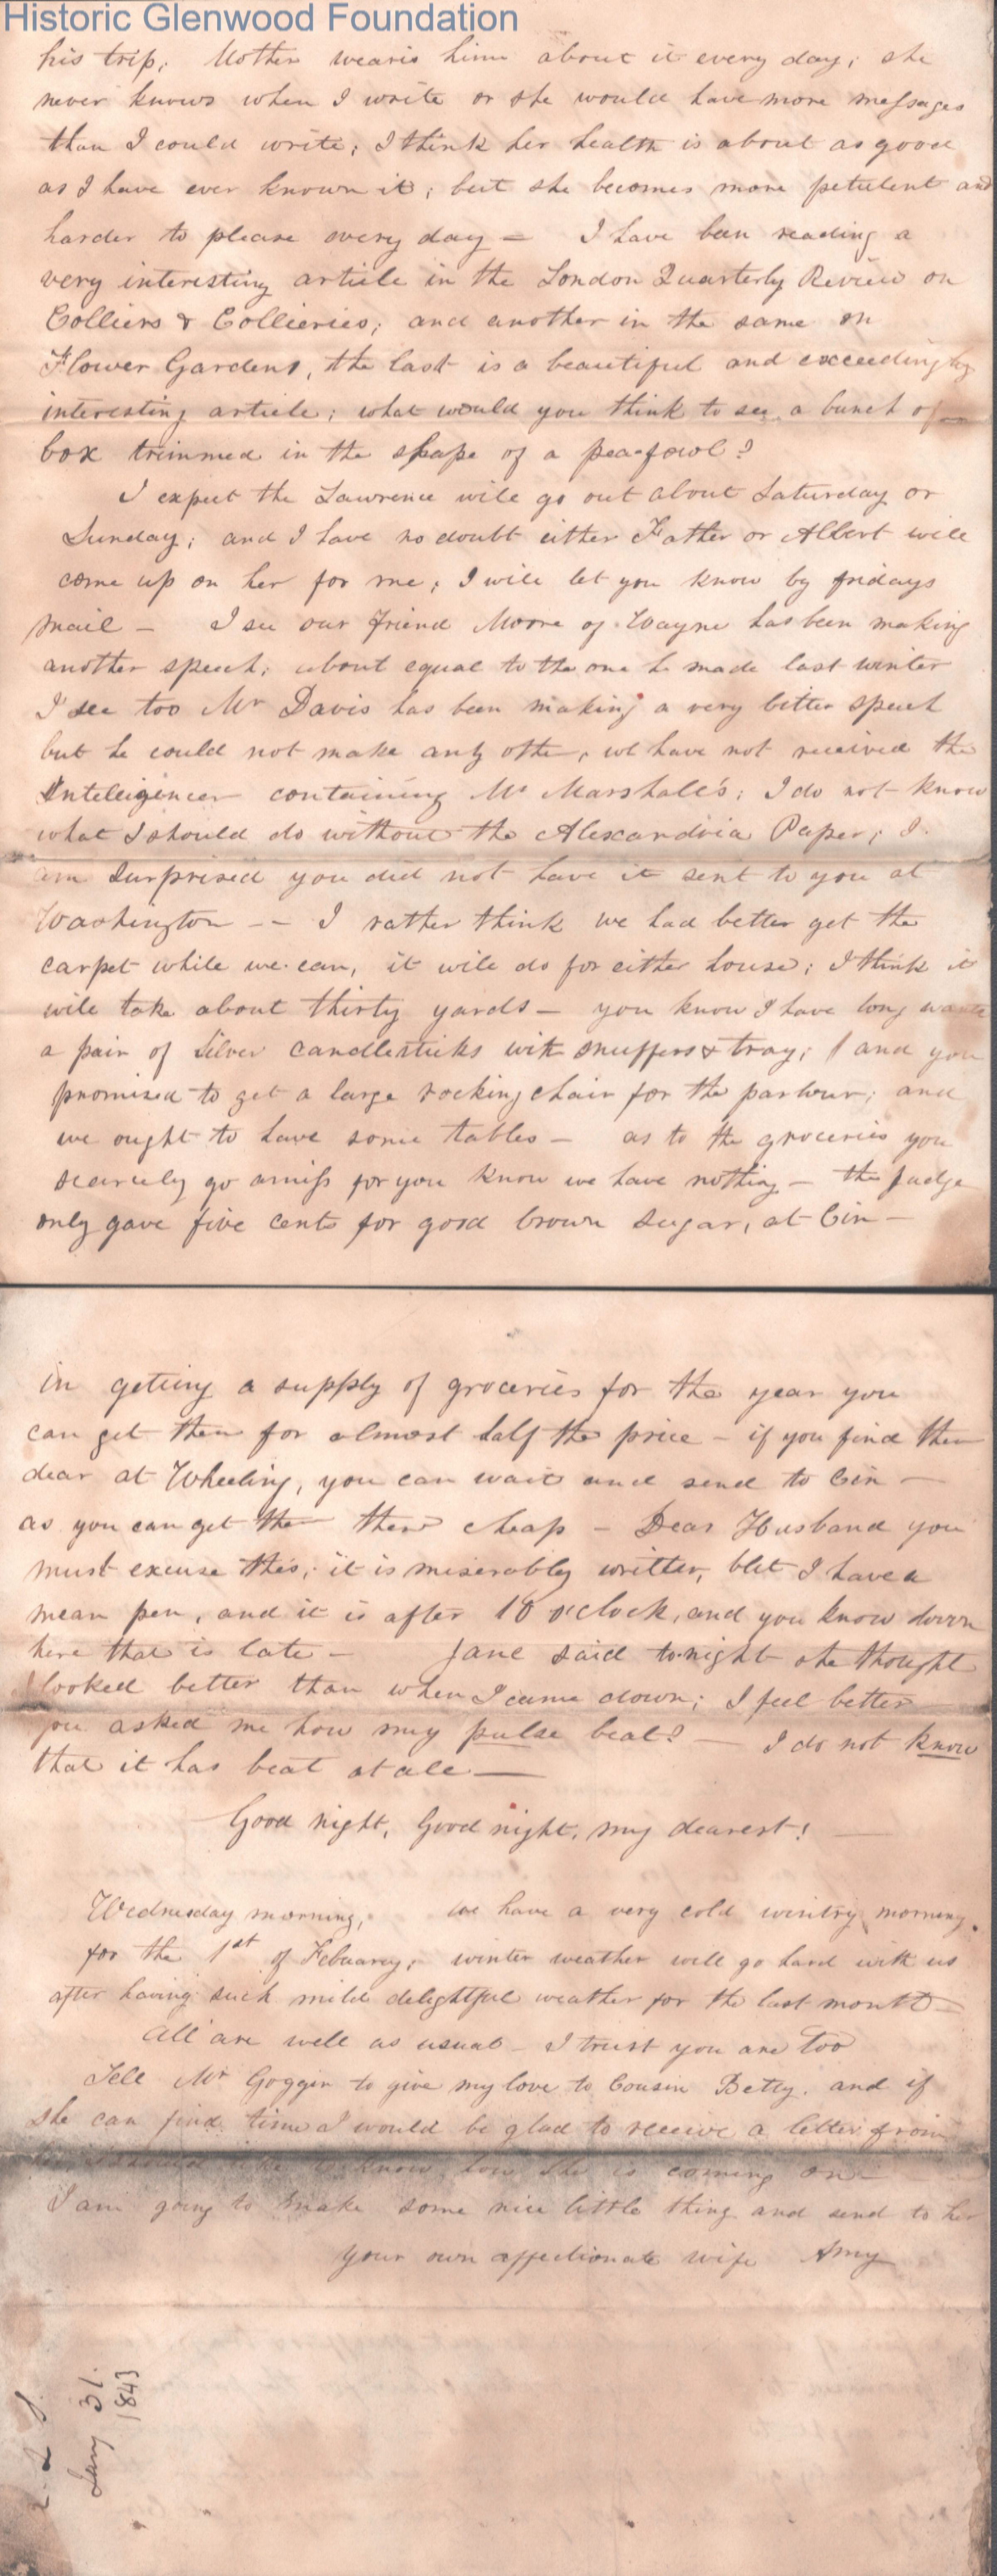 Historic Glenwood Foundation
his trip; Mother wearis him about it every day; she
never knows when I write or she would have more messages
than I could write; I think her health is about as good
as I have ever known it; but she becomes more petulent and
harder to please every day — I have been reading a
very interesting article in the London Quarterly Review on
Colliers & Collieries; and another in the same on
Flower Gardens, the last is a beautiful and exceedingly
interesting article; what would you think to see a bunch of
box trimmed in the shape of a pea-fowl?
I expect the Lawrence will go out about Saturday or
Sunday; and I have no doubt either Father or Albert will
come up on her for me; I will let you know by fridays
mail — I see our friend Moore of Wayne has been making
another speech; about equal to the one he made last winter
I see too Mr Davis has been making a very bitter speech
but he could not make any othe, we have not received the
Intelligencer containing Mr Marshall's; I do not know
what I should do without the Alexandria Paper; I
am surprised you did not have it sent to you at
Washington — — I rather think we had better get the
carpet while we can, it will do for either house; I think it
will take about thirty yards — you know I have long
a pair of Silver candlesticks with snuffers & tray; and you
promised to get a large rocking chair for the parlour; and
we ought to have some tables — as to the groceries you
scarcely go amiss for you know we have nothing — the Judge
only gave five cents for good brown sugar, at Cin —
in getting a supply of groceries for the year you
can get them for almost half the price — if you find them
dear at Wheeling, you can wait and send to Cin —
as you can get the there cheap — Dear Husband you
must excuse this; it is miserably written, but I have a
mean pen, and it is after 10 o'clock, and you know down
here that is late — Jane said to-night she thought
I looked better than when I came down; I feel better
you asked me how my pulse beat? — I do not know
that it has beat at all —
Good night, Good night, my dearest! —
Wednesday morning, we have a very cold wintry morning.
for the 1st of Febuary; winter weather will go hard with us
after having such mild delightful weather for the last month —
All are well as usual — I trust you are too
Tell Mr Goggin to give my love to Cousin Betty. and if
she can find time I would be glad to receive a letter from
know how she is coming on —
I am going to make some nice little thing and send to her
your own affectionate wife Amy
Jany 31.
1843